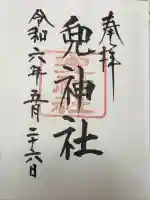 奉拝
兎神社
令和六年五月二十六日